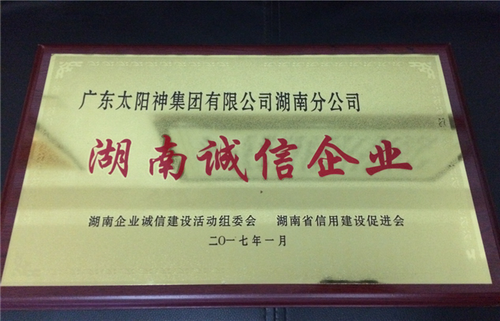 广东太阳神集团有限公司湖南分公司
湖南诚信企业
湖南企业诚信建设活动组委会 湖南省信用建设促进会
二〇一七年一月